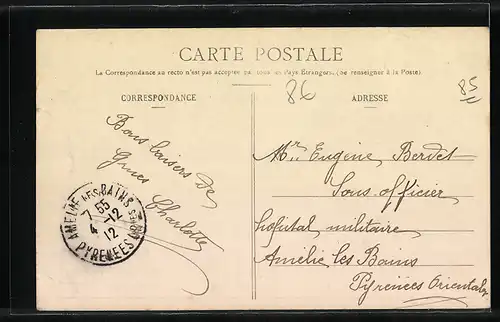 CARTE POSTALE
La Correspondance au recto n'est pas acceptée par tous les Pays Étrangers. (ne renseigner à la Poste)
CORRESPONDANCE
ADRESSE
86
85
Bons baisers de
Charlotte
Mr. Eugène Berdet
Sous officier
hopital militaire
Amélie les Bains
Pyrénées Orientales
AMELIE LES BAINS
7 55
4 -12
12
PYRENEES